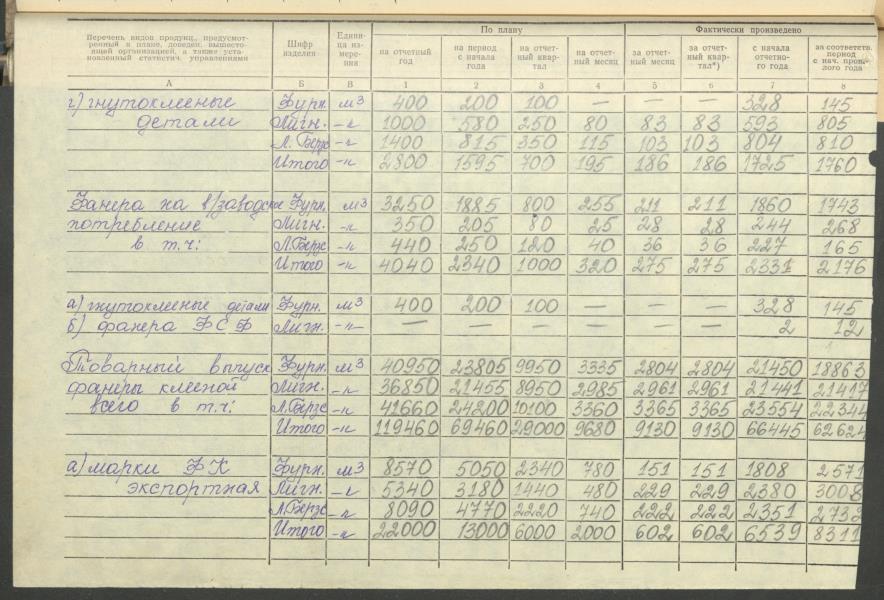 Перечень видов продукц., предусмотренный в плане, доведен. вышестоящей организацией, а также установленный статистич. управлениями | Шифр изделия | Единица измерения | По плану | Фактически произведено
на отчетный год | на период с начала года | на отчетный квартал | на отчетный месяц | за отчетный месяц | за отчетный квартал*) | с начала отчетного года | за соответств. период с нач. прошлого года
А | Б | В | 1 | 2 | 3 | 4 | 5 | 6 | 7 | 8
г) гнутоклееные | Фурн. | м3 | 400 | 200 | 100 | — | — | — | 328 | 145
детали | Лигн. | -"- | 1000 | 580 | 250 | 80 | 83 | 83 | 593 | 805
Л. Берзс | -"- | 1400 | 815 | 350 | 115 | 103 | 103 | 804 | 810
Итого | -"- | 2800 | 1595 | 700 | 195 | 186 | 186 | 1725 | 1760
Фанера на в/заводское | Фурн. | м3 | 3250 | 1885 | 800 | 255 | 211 | 211 | 1860 | 1743
потребление | Лигн. | -"- | 350 | 205 | 80 | 25 | 28 | 28 | 244 | 268
в т.ч: | Л.Берзс | -"- | 440 | 250 | 120 | 40 | 36 | 36 | 227 | 165
Итого | -"- | 4040 | 2340 | 1000 | 320 | 275 | 275 | 2331 | 2176
а) гнутоклееные детали | Фурн. | м3 | 400 | 200 | 100 | — | — | — | 328 | 145
б) фанера ФСФ | Лигн. | -"- | — | — | — | — | — | — | 2 | 12
Товарный выпуск | Фурн. | м3 | 40950 | 23805 | 9950 | 3335 | 2804 | 2804 | 21450 | 18863
фанеры клееной | Лигн. | -"- | 36850 | 21455 | 8950 | 2985 | 2961 | 2961 | 21441 | 21417
всего в т.ч: | Л.Берзс | -"- | 41660 | 24200 | 10100 | 3360 | 3365 | 3365 | 23554 | 22344
Итого | -"- | 119460 | 69460 | 29000 | 9680 | 9130 | 9130 | 66445 | 62624
а) марки ФК | Фурн. | м3 | 8570 | 5050 | 2340 | 780 | 151 | 151 | 1808 | 2571
экспортная | Лигн. | -"- | 5340 | 3180 | 1440 | 480 | 229 | 229 | 2380 | 3008
Л.Берзс | -"- | 8090 | 4770 | 2220 | 740 | 222 | 222 | 2351 | 2732
Итого | -"- | 22000 | 13000 | 6000 | 2000 | 602 | 602 | 6539 | 8311